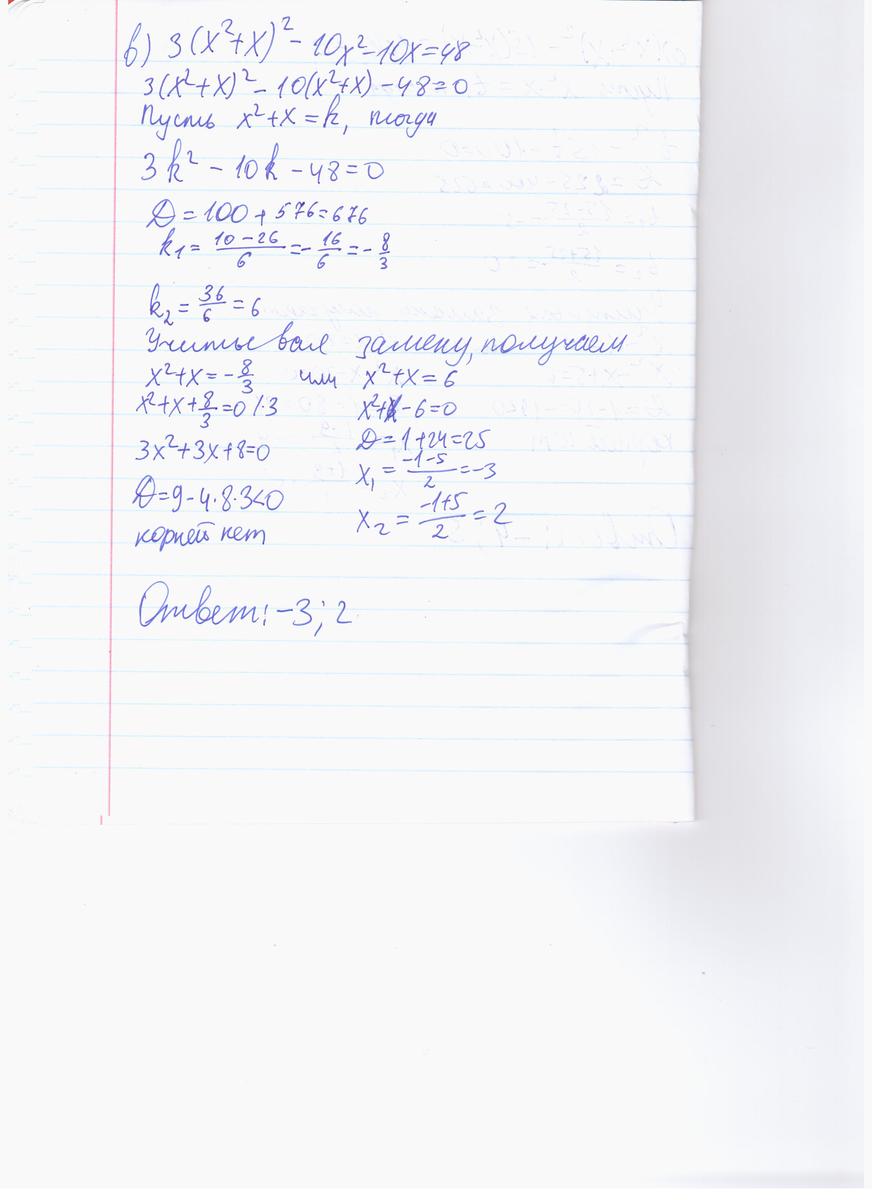 в) 3(x²+x)² - 10x² - 10x = 48
3(x²+x)² - 10(x²+x) - 48 = 0
Пусть x²+x = k, тогда
3k² - 10k - 48 = 0
D = 100 + 576 = 676
k₁ = (10-26)/6 = -16/6 = -8/3
k₂ = 36/6 = 6
Учитывая замену, получаем
x²+x = -8/3 или x²+x = 6
x²+x+8/3=0 |·3
x²+x-6=0
3x²+3x+8=0
D = 1+24=25
x₁ = (-1-5)/2 = -3
D = 9-4·8·3<0
x₂ = (-1+5)/2 = 2
корней нет
Ответ: -3; 2